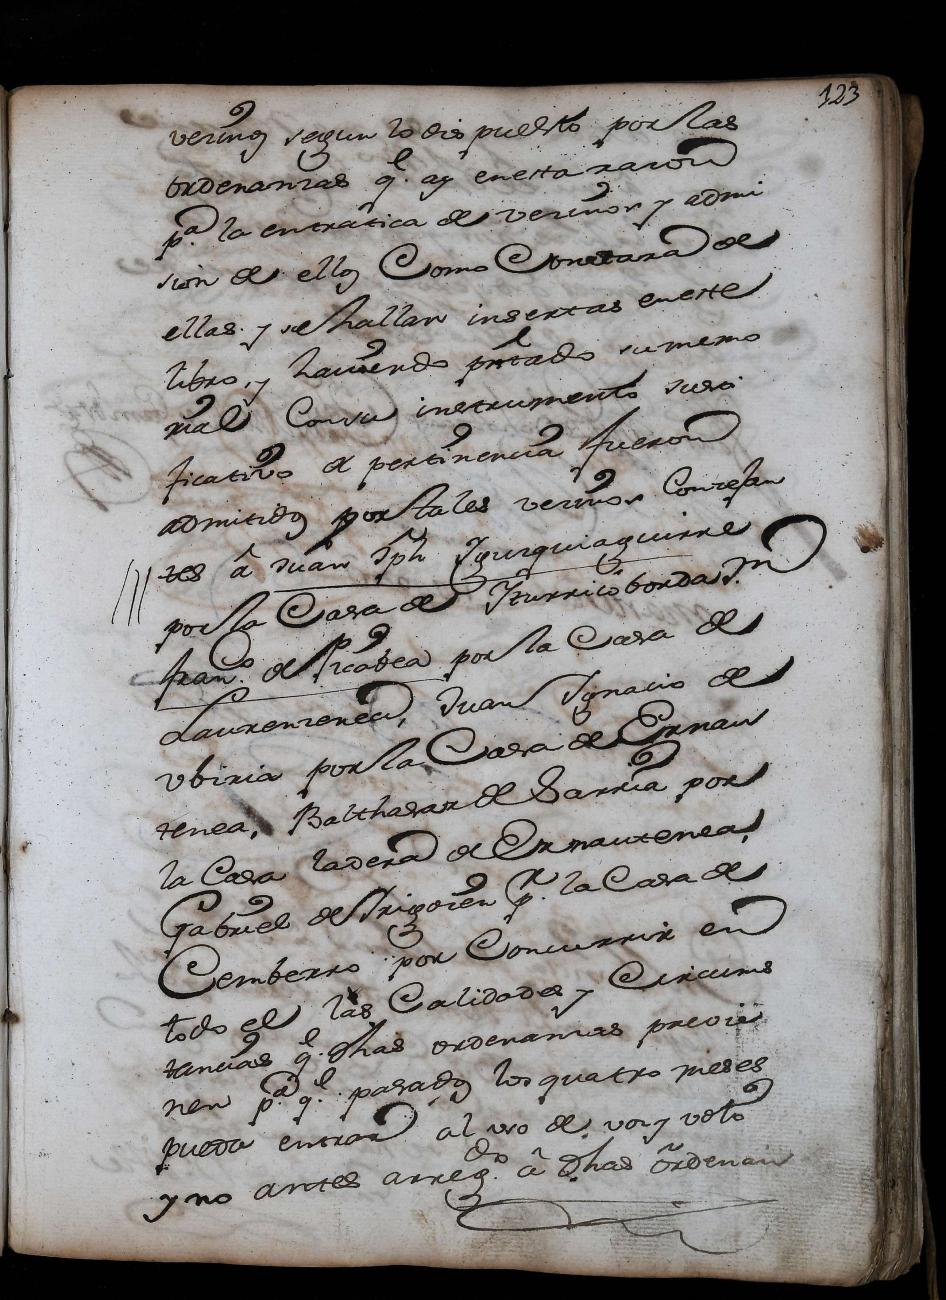 123
vecinos segun lo dispuesto por las
ordenanzas q.e ay en esta razon
p.a la entratica de vecinos y admi
sion de ellos Como Constara de
ellas y se hallan insertas en este
libro, y haviendo pntado su memo
rial Con su instrumento justi
ficativo de pertinencia fueron
admitidos por tales vecinos Concejan
tes â Juan Jph Yguiguiaguirre
por la Casa de Yturricoborda, Jn
Fran.co de Picabea por la Casa de
Laurenzenea, Juan Ygnacio de
Ubiria por la Casa de Ernau
tenea, Balthasar de Sarria por
la Casa ladera de Ernautenea,
Gabriel de Yrigoien p.r la Casa de
Cemberro por Concurrir en
todo el las Calidades y Circuns
tancias q.e dhas ordenanzas previe
nen p.a q.e pasados los quatro meses
pueda entrar al uso de voz y voto
y no antes arreg.do â dhas ordenan